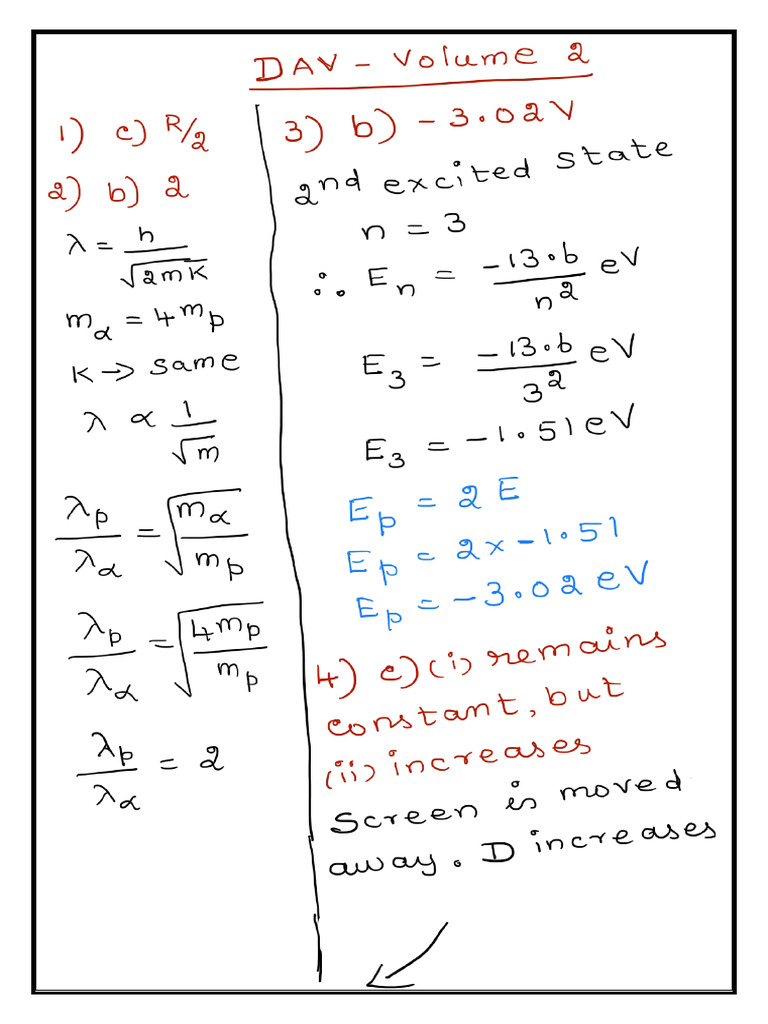 DAV - Volume 2
1) c) R/2
2) b) 2
λ = h/√2mK
m_α = 4m_p
K → same
λ ∝ 1/√m
λ_p/λ_α = √(m_α/m_p)
λ_p/λ_α = √(4m_p/m_p)
λ_p/λ_α = 2
3) b) -3.02V
2nd excited state
n = 3
∴ E_n = -13.6/n² eV
E_3 = -13.6/3² eV
E_3 = -1.51eV
E_p = 2E
E_p = 2x-1.51
E_p = -3.02eV
4) c) (i) remains
constant, but
(ii) increases
Screen is moved
away. D increases